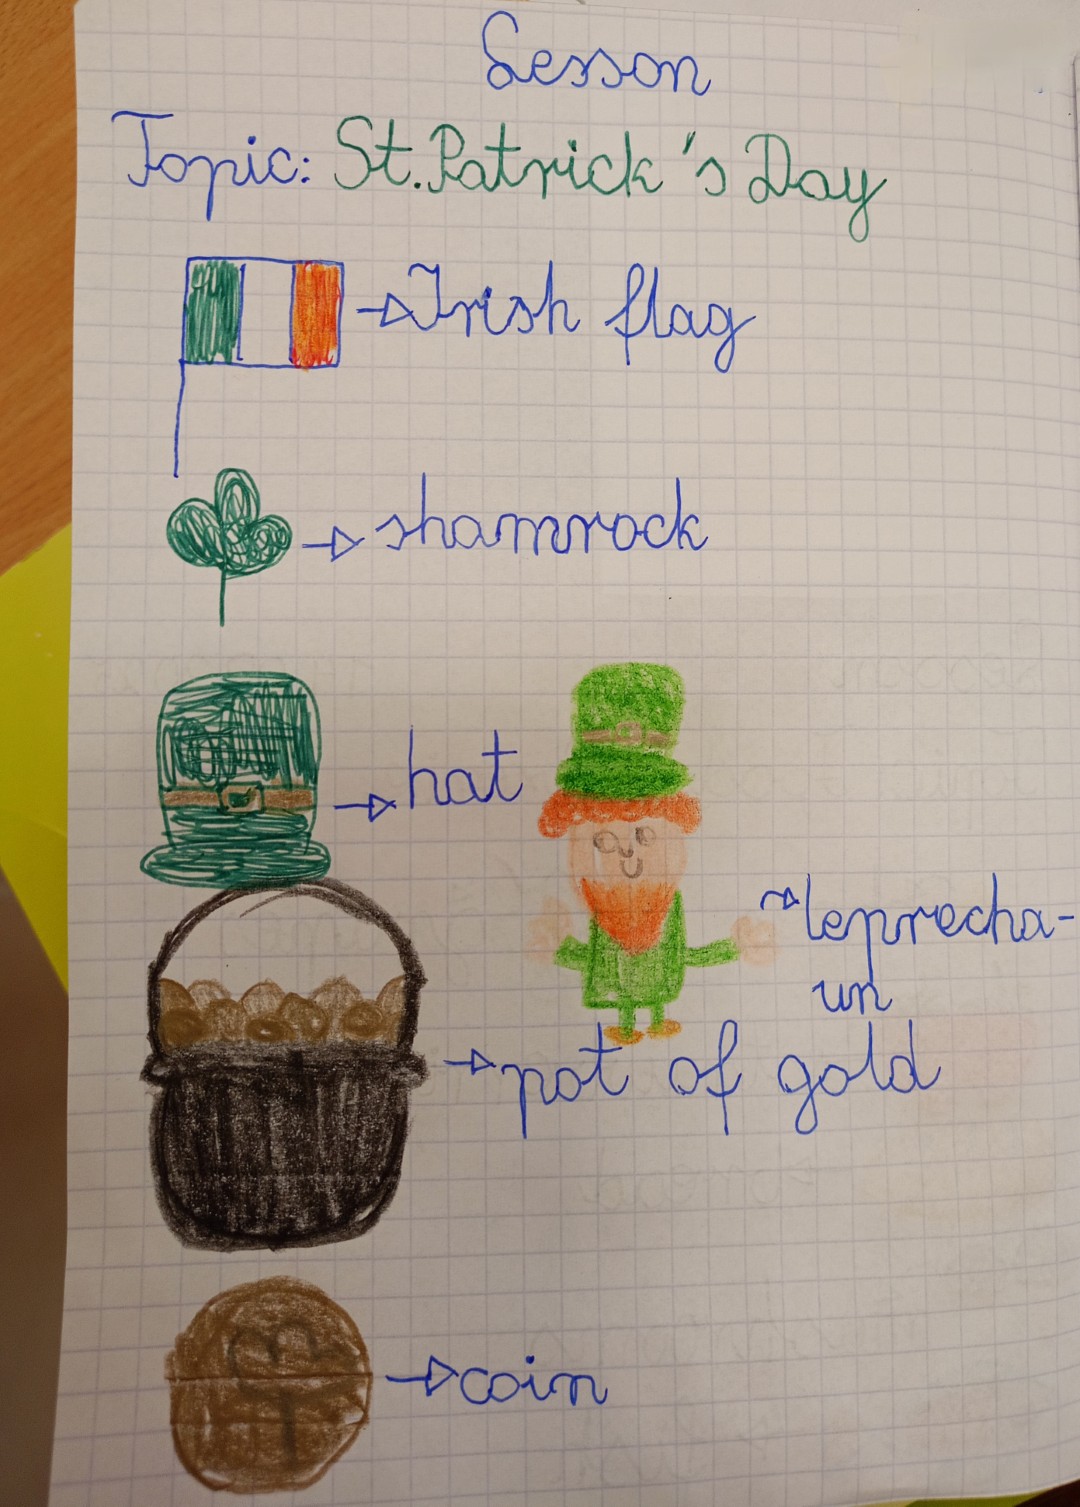 Lesson
Topic: St. Patrick's Day
Irish flag
shamrock
hat
leprecha-
un
pot of gold
coin